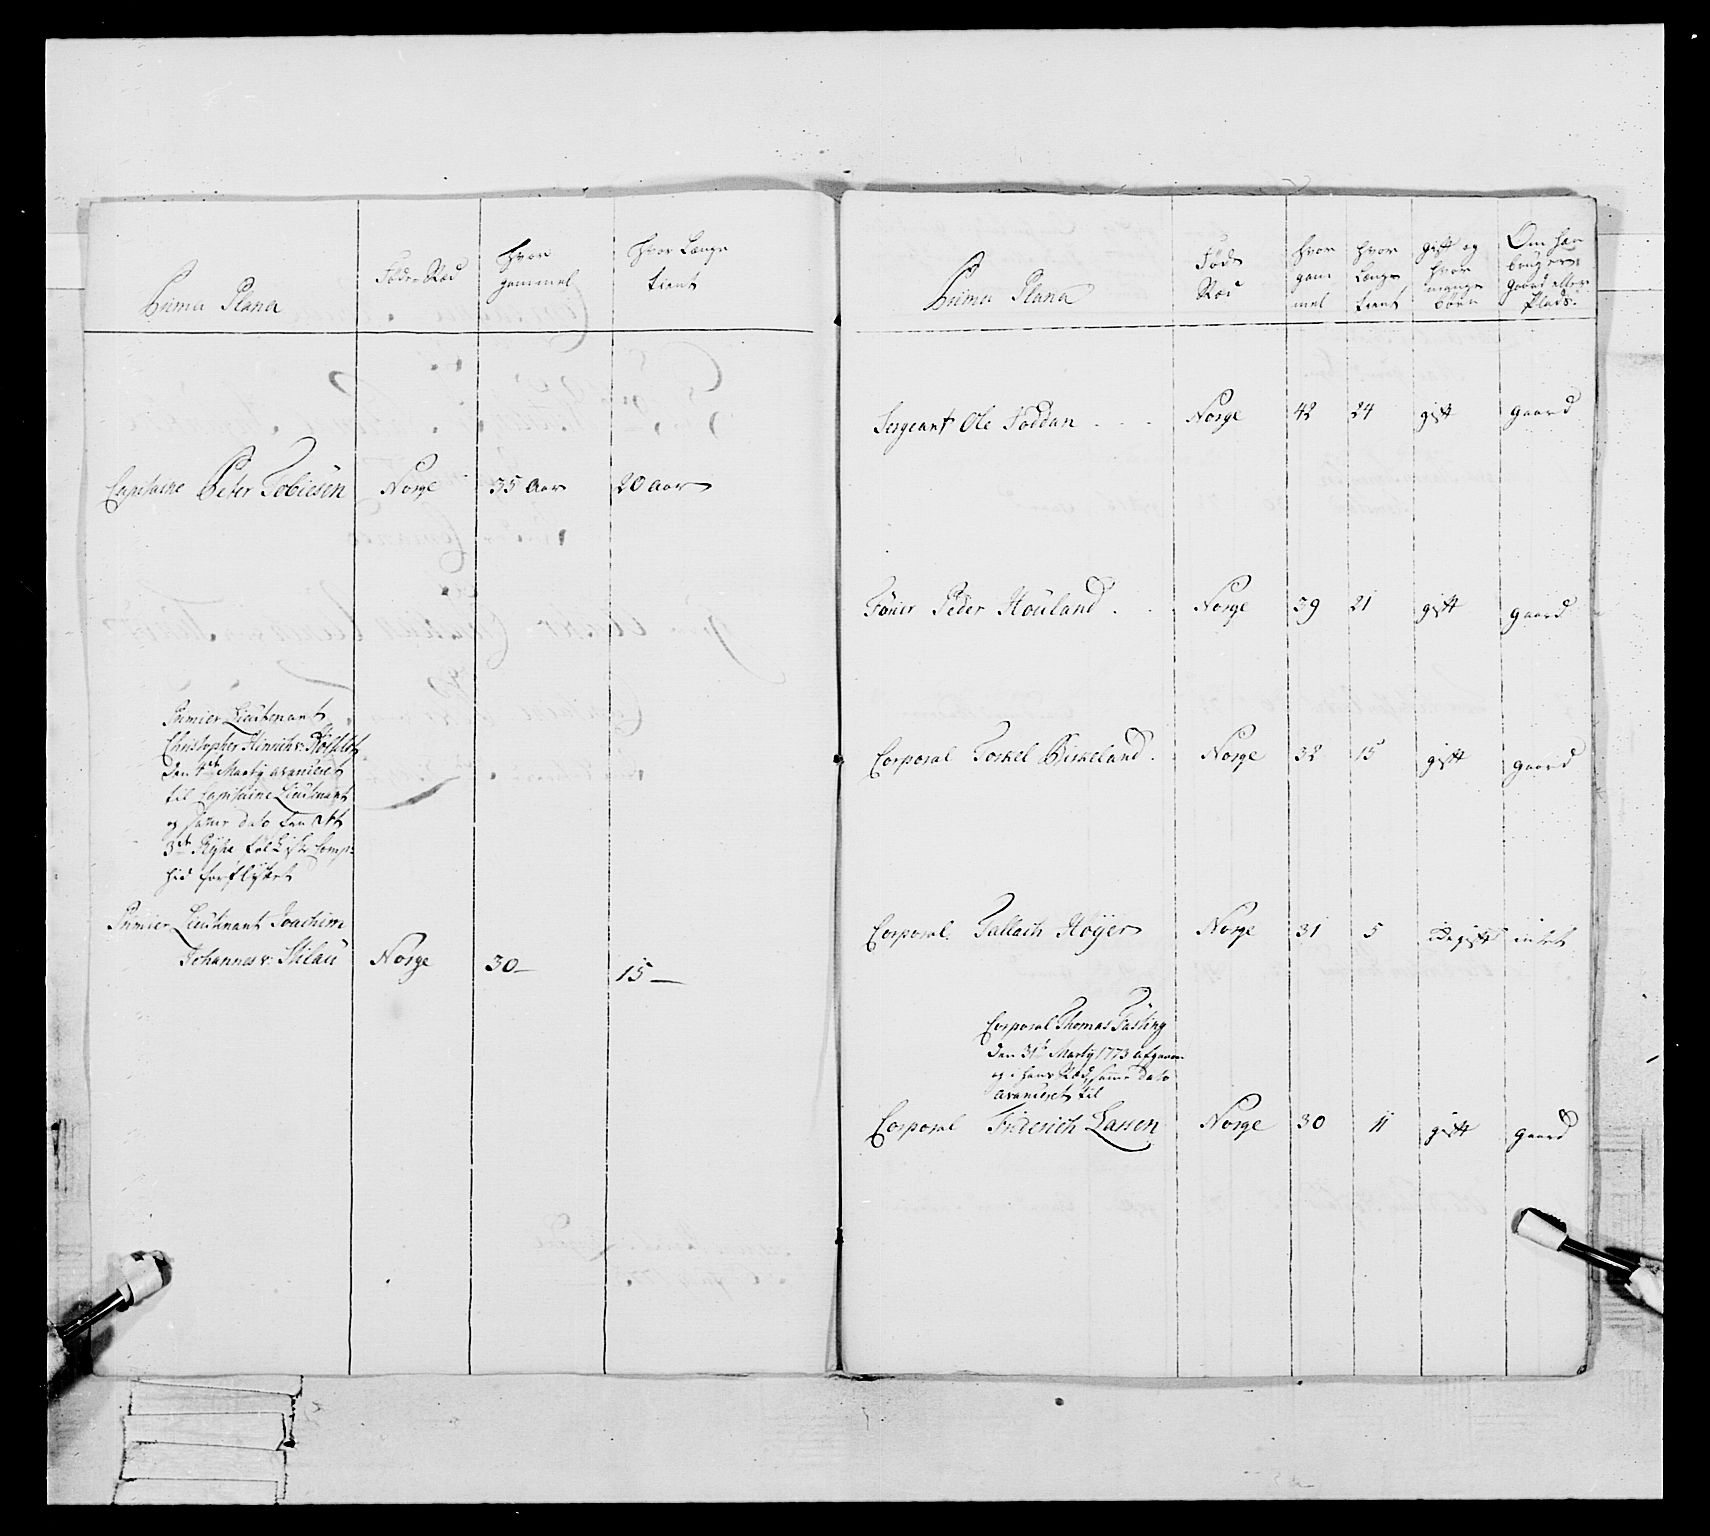 Prima Plana
Føde-Stæd
hvor
gammel
hvor Længe
tient
Capitaine Peter Tobiesen Norge 35 Aar 20 Aar
Premier Lieutenant
Christopher Hinrich v:
den 1ste Marty avanceret
til Capitaine Lieutenant
og samme dato fra
3de
hid forflyttet
Premier Lieutenant Joachim
Johannes v: Norge 30 — 15 —
Prima Plana
Føde
Stæd
hvor
gam
mel
hvor
Længe
tient
gift og
hvor
mange
Børn
Om han
bruger
Gaard eller
Plads.
Sergeant Ole Foddan . . . Norge 42 24 gift gaard
Peder Houland . . Norge 39 21 gift gaard
Corporal Torkel Birkeland . Norge 32 15 gift gaard
Corporal Tallach Høyer Norge 31 5 ugift intet
Corporal Thomas Fasting
den 31te Marty 1773 afgaaen
og i hans Stæd samme dato
avanceret til
Corporal Friderich Lassen Norge 30 11 gift gaard